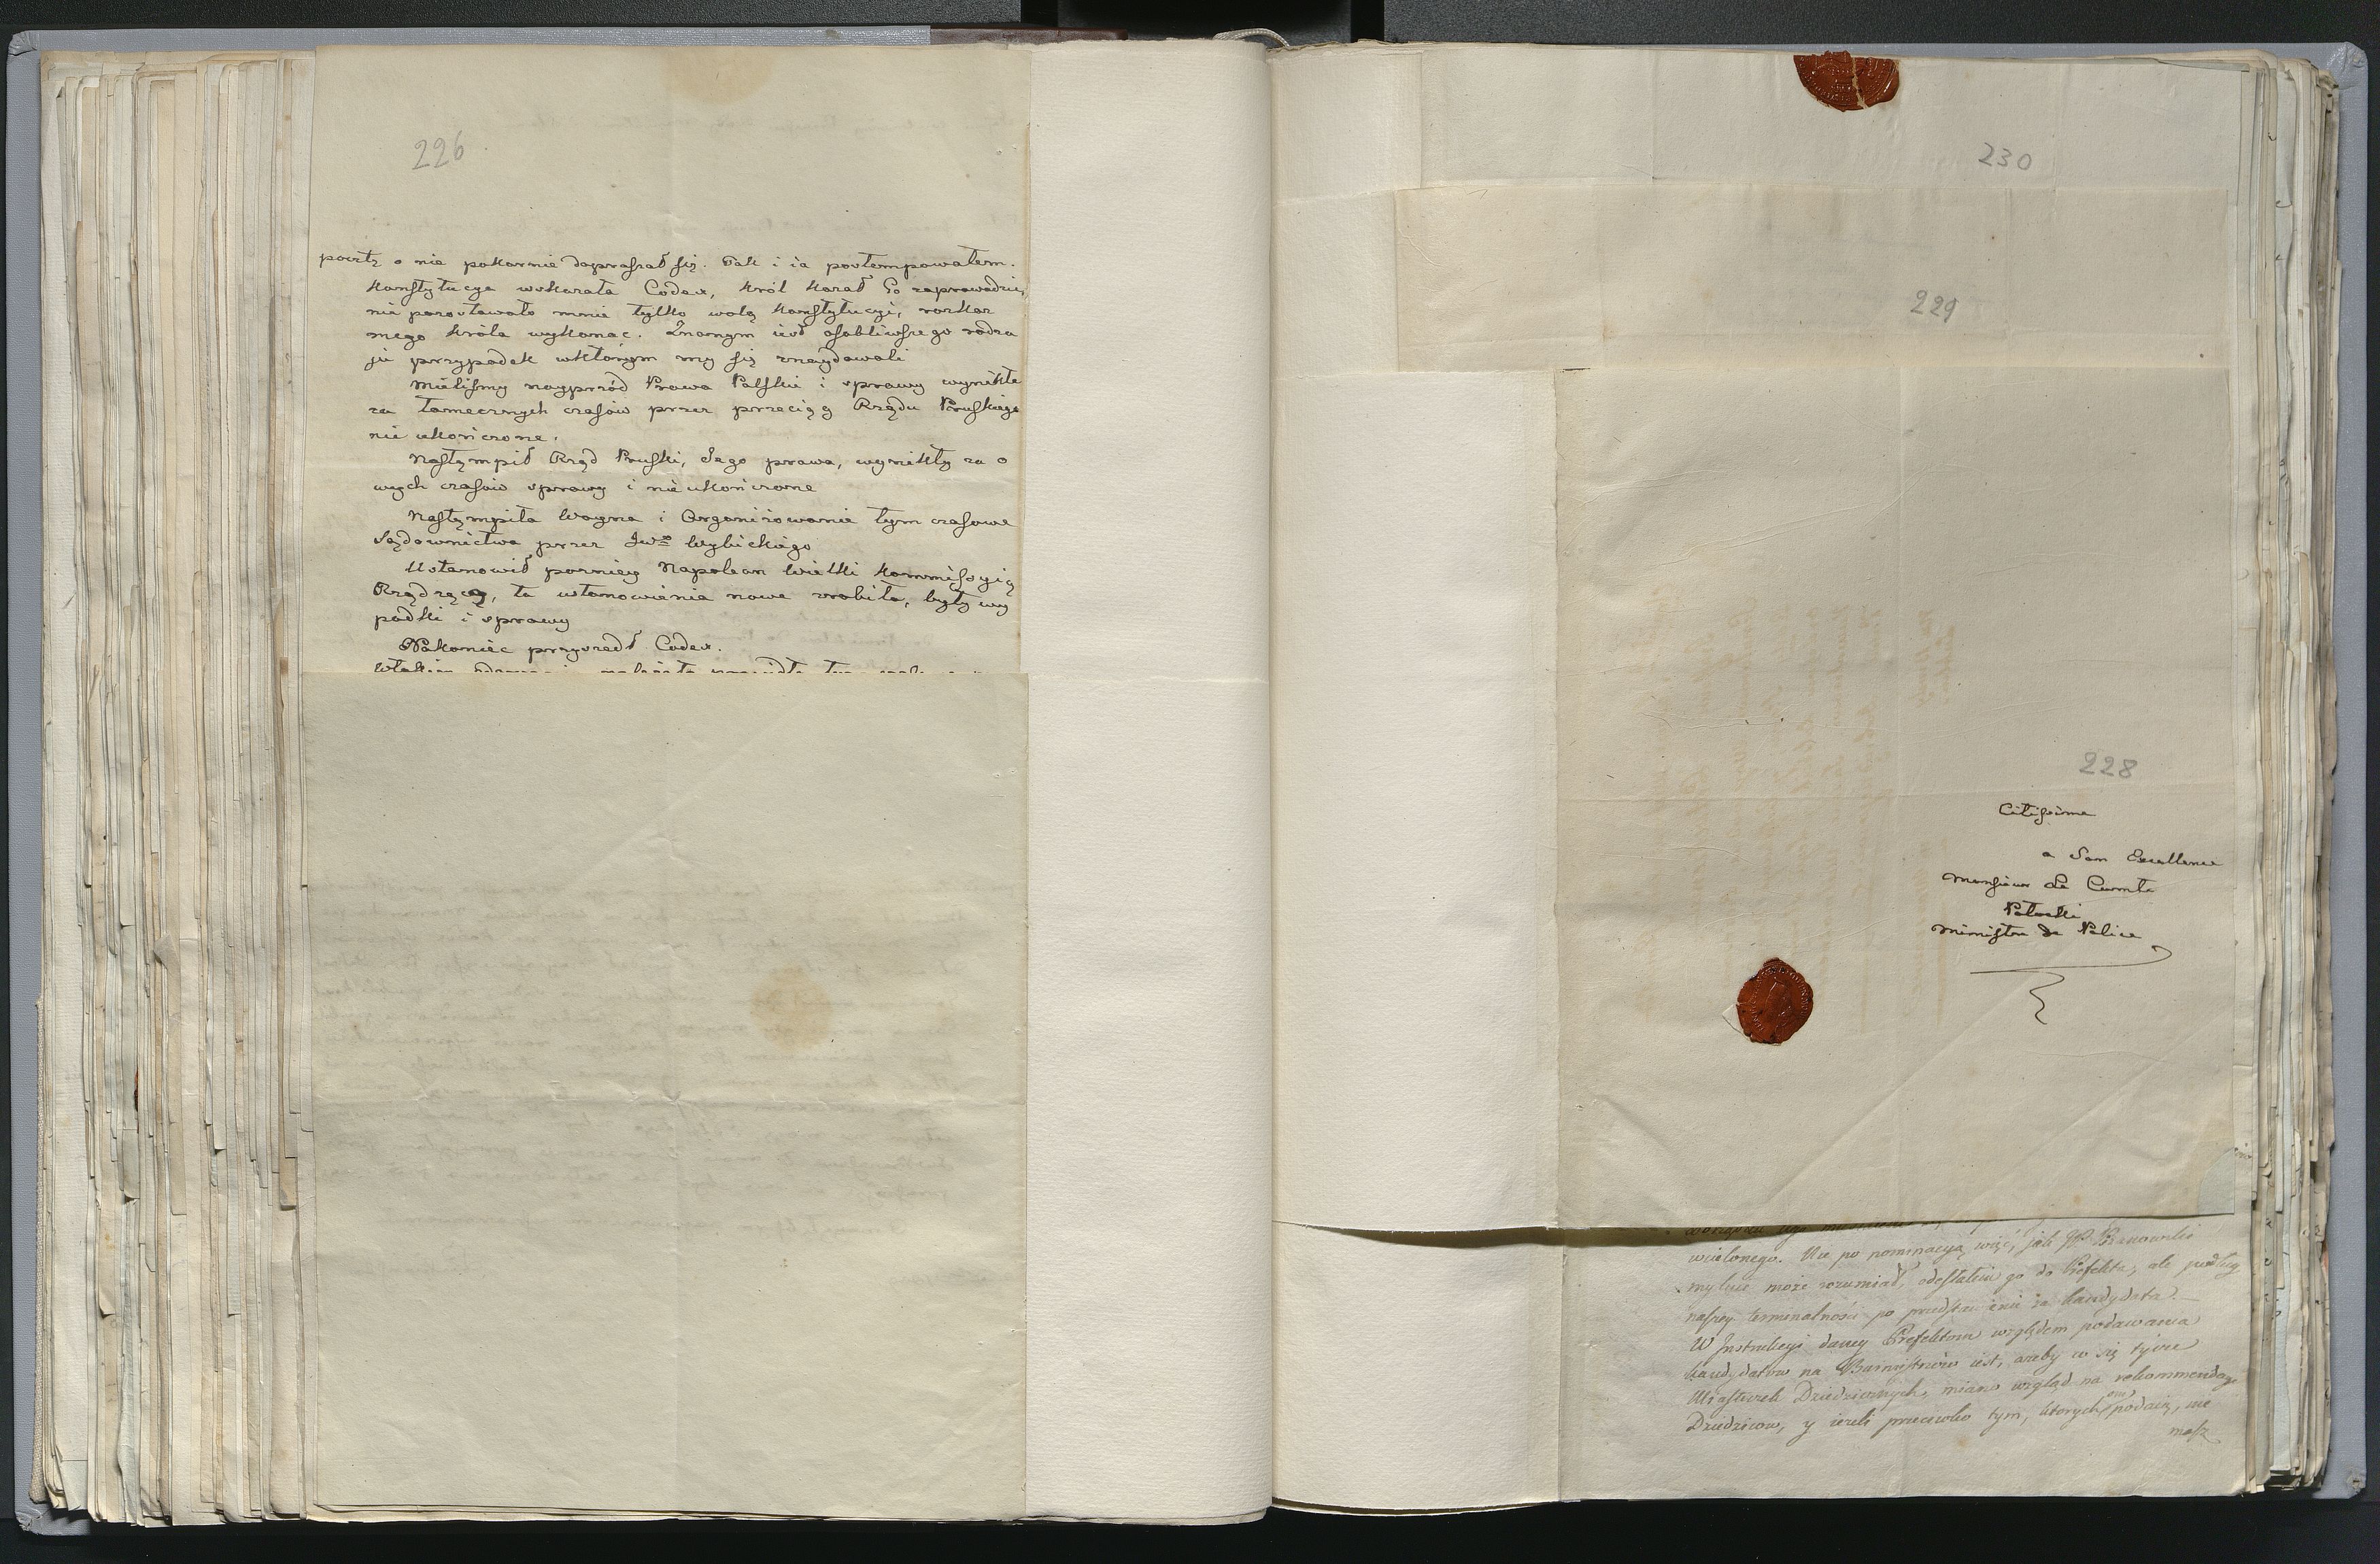 226
pocztę o nie pokornie dopraszał się. Tak i ia postempowałem.
Konstytucya wskazała Codex, król kazał Go zaprowadzić,
nie pozostawało mnie tylko wolą Konstytucyi, rozkaz
mego króla wykonać. Znanym iest osobliwszego rodza
ju przypadek wktórym my się znaydowali
Mieliśmy nayprzód Prawa Polskie i sprawy wynikłe
za tamecznych czasów przez przeciąg Rządu Pruskiego
nie ukończone.
Nastąmpił Rząd Pruski, Jego prawa, wynikły za o
wych czasów sprawy i nie ukończone
Nastąmpiła Woyna i Organizowanie tym czasowe
Sądownictwa przez Jwo Wybickiego
Ustanowił pozniey Napoleon Wielki Kommissyią
Rządzącą, ta ustanowienia nowe zrobiła, były wy
padki i sprawy
Nakoniec przyszedł Codex.
230
229
228
Citissime
a Son Excellence
Monsieur Le Comte
Potocki
Ministre de Police
wcielonego. Nie po nominacyą więc, jak JP
mylnie może rozumiał, odesłałem go do Prefekta, ale podług
naszey terminalności po przedstawienie za kandydata.
W Instrukcyi daney Prefektom względem podawania
kandydatów na Burmistrzów iest, ażeby w się tycze
Miasteczek Dziedzicznych, miano wzgląd na rekommendacye
Dziedziców, y ieżeli przeciwko tym, których oni podaią, nie
masz